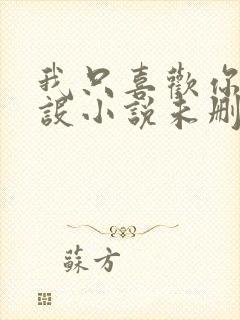 我只喜歡你
設小說未刪
蘇方